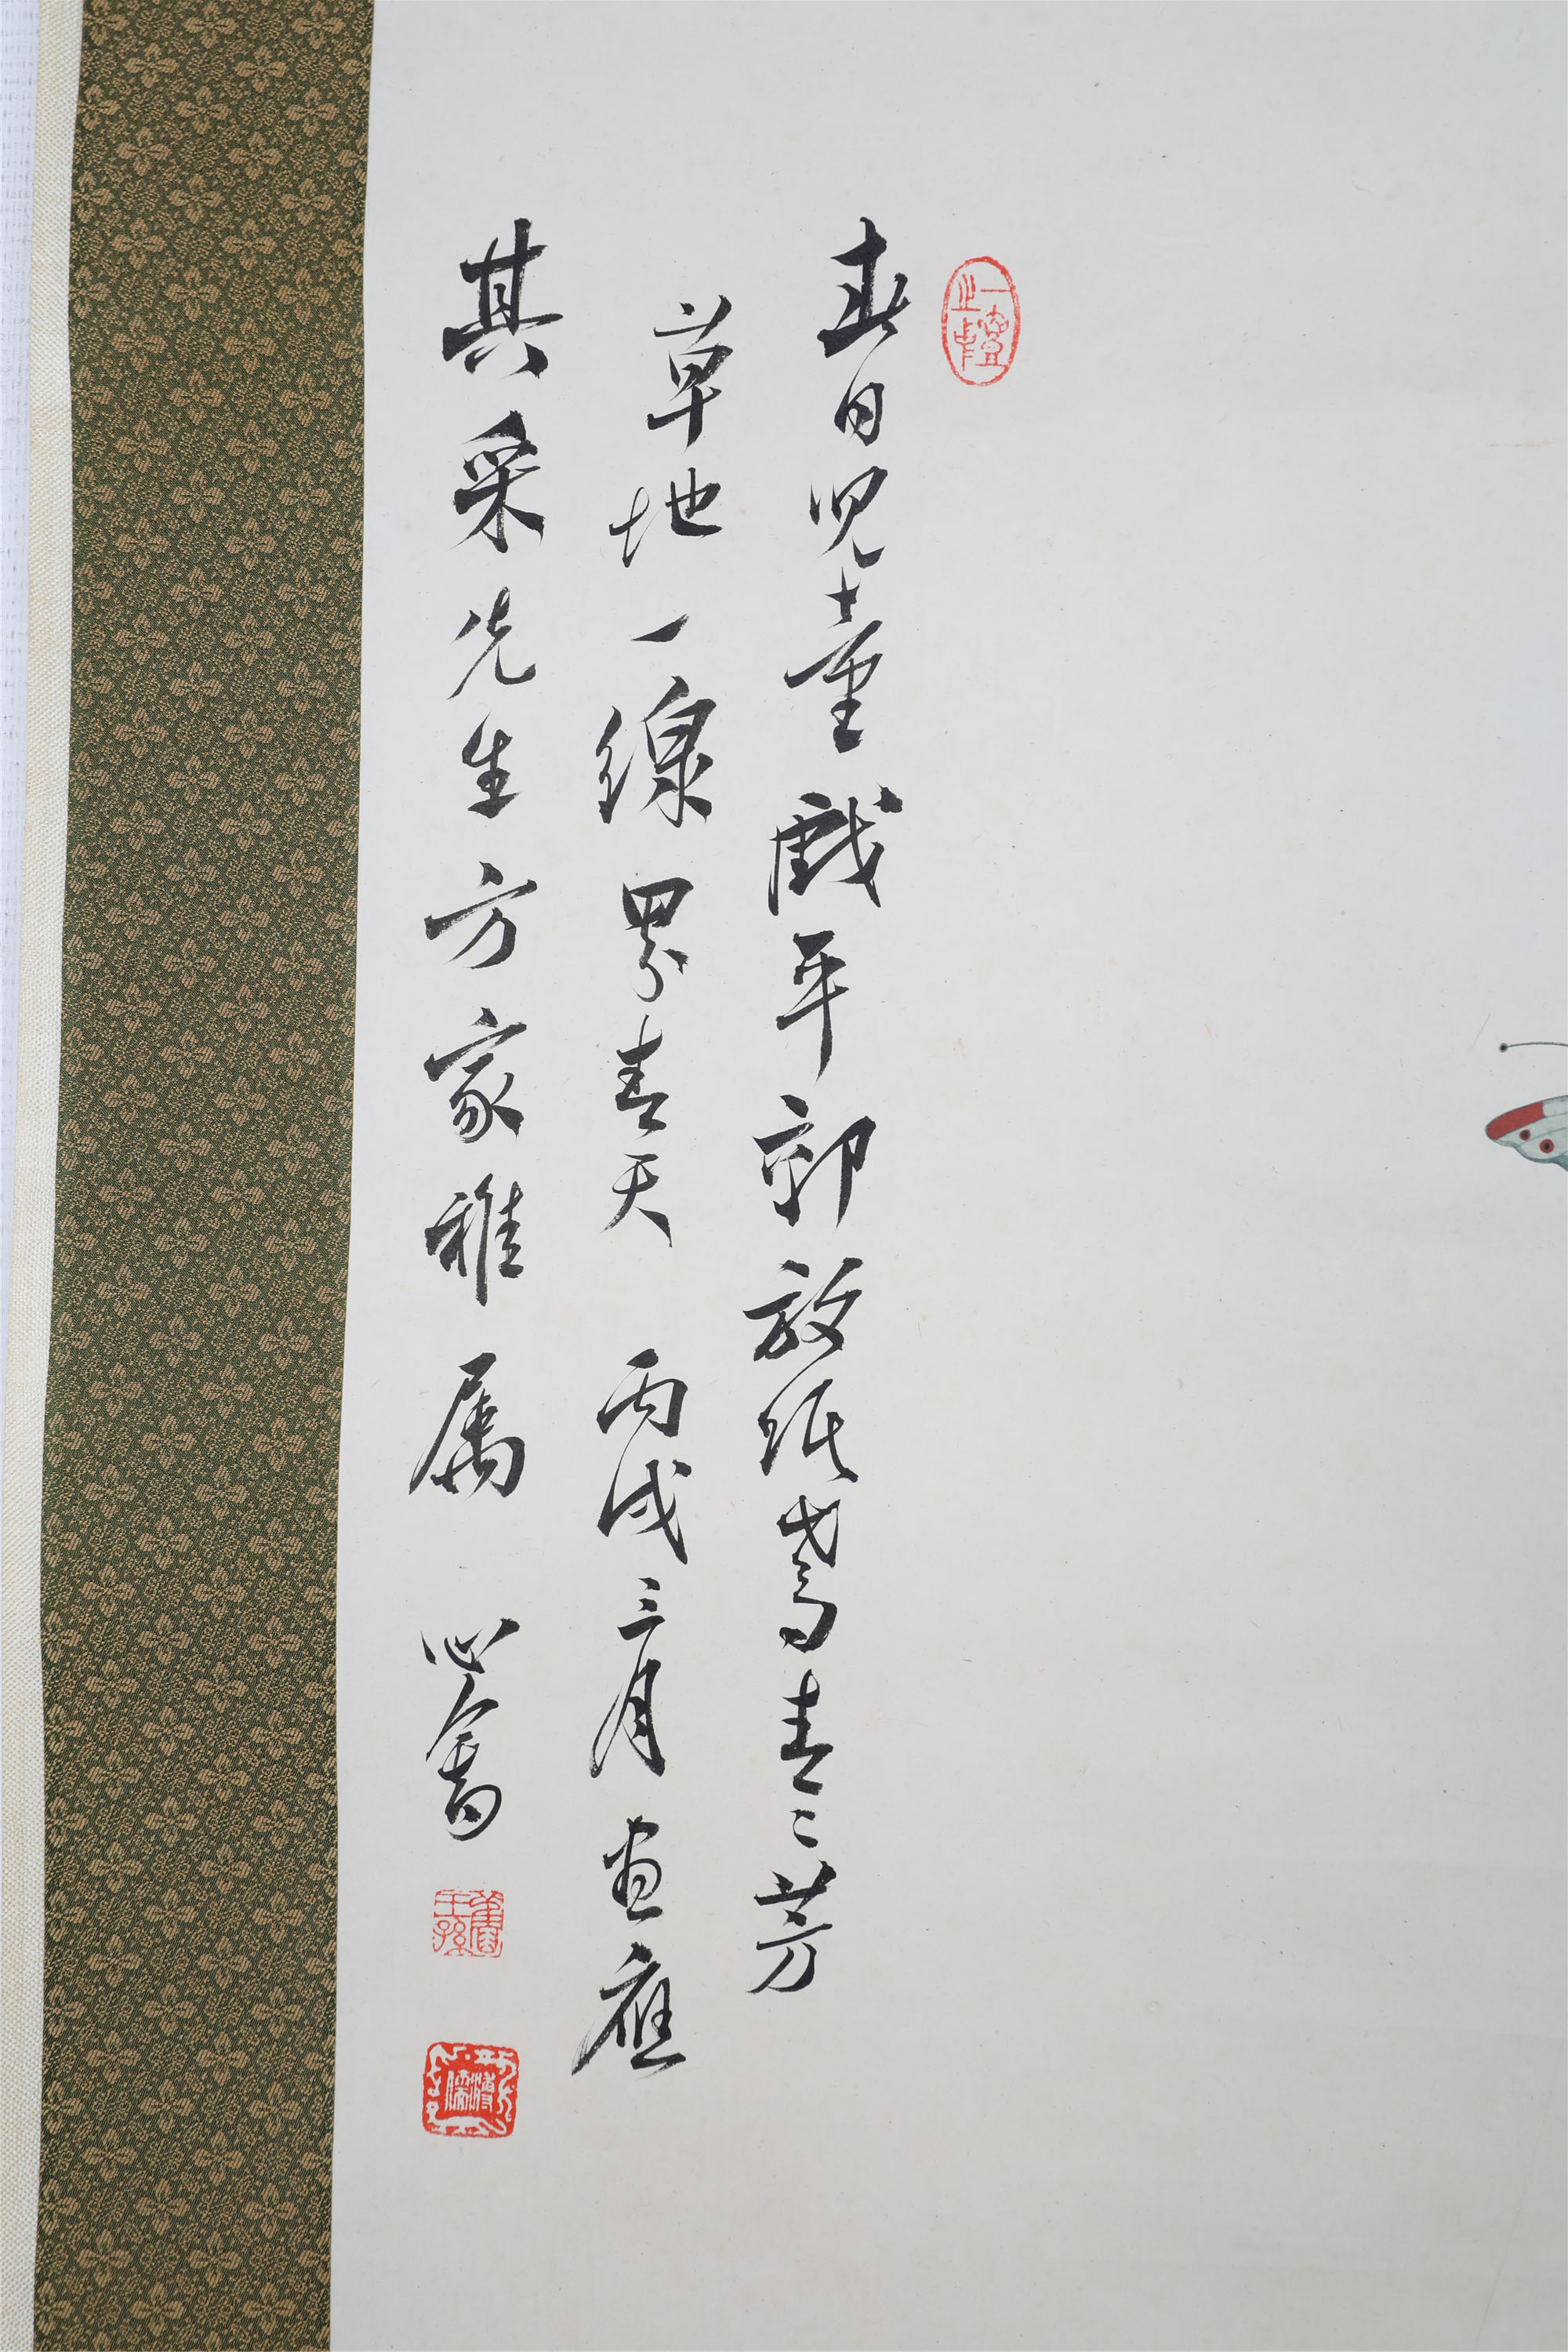 春日兒童戲平郊放紙鳶青〻芳
草地一線界青天 丙戌三月畫應
其采先生方家雅屬 心畬
一壺之中
舊王孫
溥儒